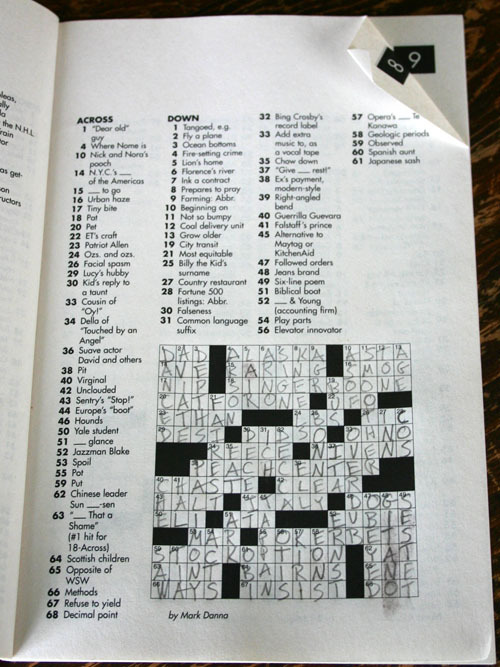 pleas,
the N.H.L.
as get-
89
ACROSS
1 "Dear old" guy
4 Where Nome is
10 Nick and Nora's
pooch
14 N.Y.C.'s ___
of the Americas
15 ___ to go
16 Urban haze
17 Tiny bite
18 Pat
20 Pet
22 ET's craft
23 Patriot Allen
24 Ozs. and ozs.
26 Facial spasm
29 Lucy's hubby
30 Kid's reply to
a taunt
33 Cousin of
"Oy!"
34 Della of
"Touched by an
Angel"
36 Suave actor
David and others
38 Pit
40 Virginal
42 Unclouded
43 Sentry's "Stop!"
44 Europe's "boot"
46 Hounds
50 Yale student
51 ___ glance
52 Jazzman Blake
53 Spoil
55 Pot
59 Put
62 Chinese leader
Sun ___-sen
63 "___ That a
Shame"
(#1 hit for
18-Across)
64 Scottish children
65 Opposite of
WSW
66 Methods
67 Refuse to yield
68 Decimal point
DOWN
1 Tangoed, e.g.
2 Fly a plane
3 Ocean bottoms
4 Fire-setting crime
5 Lion's home
6 Florence's river
7 Ink a contract
8 Prepares to pray
9 Farming: Abbr.
10 Beginning on
11 Not so bumpy
12 Coal delivery unit
13 Grow older
19 City transit
21 Most equitable
25 Billy the Kid's
surname
27 Country restaurant
28 Fortune 500
listings: Abbr.
30 Falseness
31 Common language
suffix
32 Bing Crosby's
record label
33 Add extra
music to, as
a vocal tape
35 Chow down
37 "Give ___ rest!"
38 Ex's payment,
modern-style
39 Right-angled
bend
40 Guerrilla Guevara
41 Falstaff's prince
45 Alternative to
Maytag or
KitchenAid
47 Followed orders
48 Jeans brand
49 Six-line poem
51 Biblical boat
52 ___ & Young
(accounting firm)
54 Play parts
56 Elevator innovator
57 Opera's ___ Te
Kanawa
58 Geologic periods
59 Observed
60 Spanish aunt
61 Japanese sash
DAD ALASKA ASTA
AVE RARING SMOG
NIP
CATORONE UFO
ETHAN LBS
DESI DIDSO OHNO
REECE NIVENS
PEACHCENTER
CLEAR
HALT ITALY DOGS
ELI ATA EUBIE
MAR POKERBETS
STOCKOPTION YAT
AINT BAIRNS ENE
WAYS INSIST DOT
by Mark Danna